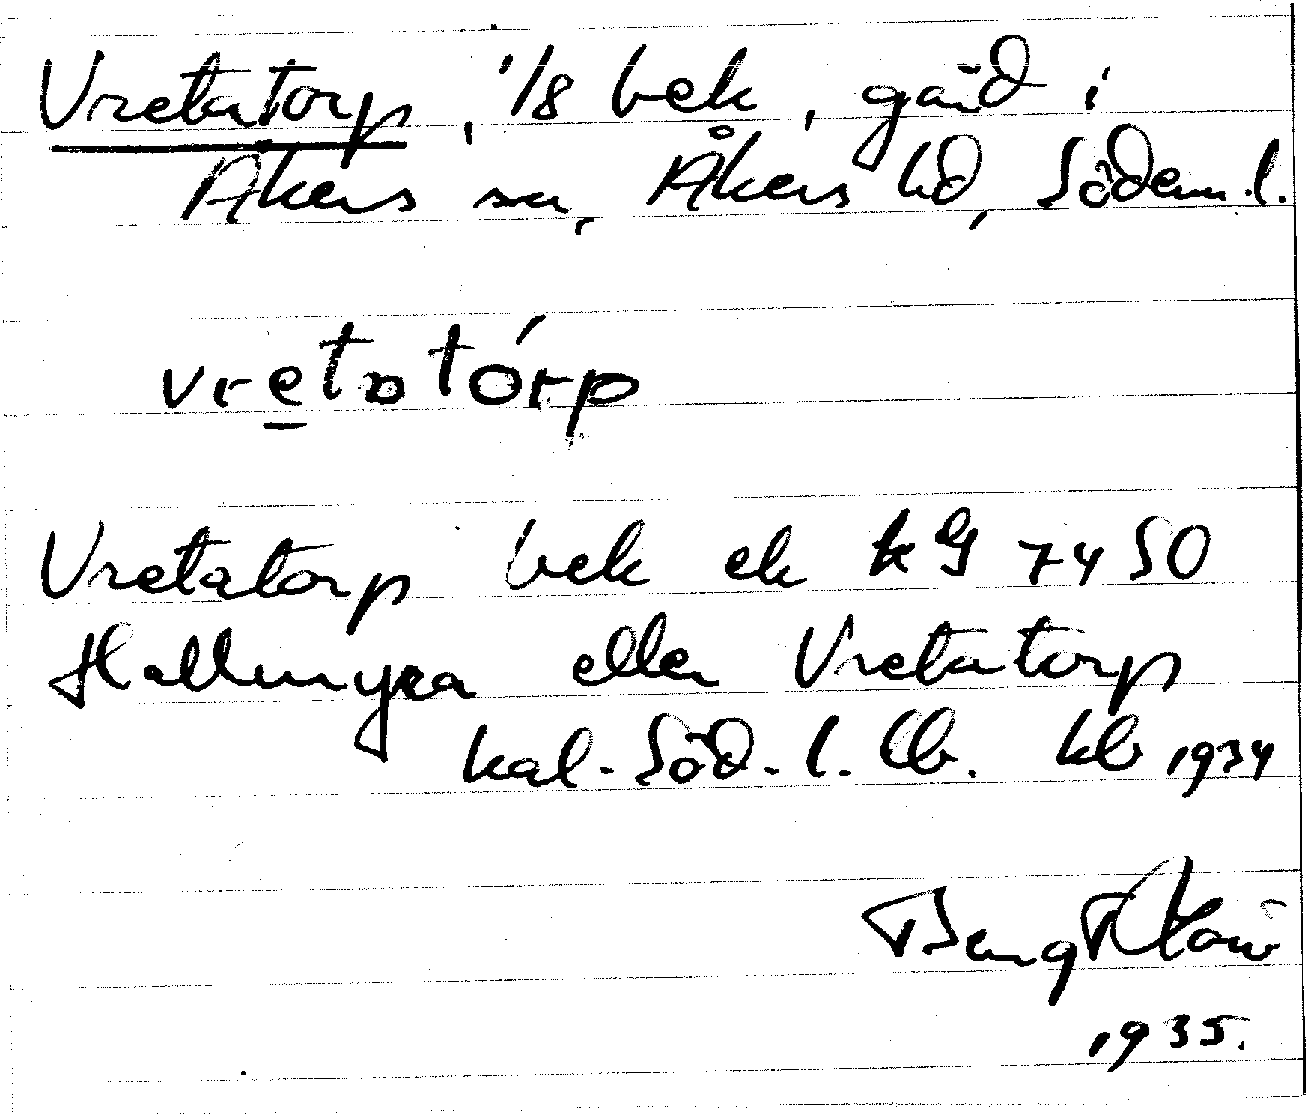 Vretatorp, 1/8 bek, gård i
Åkers sn, Åkers hd, Söderm.l.
vretatórp
Vretatorp bek ek kG 7450
Hallmyra eller Vretatorp
kal. Söd. l. lb. kb 1934
Bengt
1935.